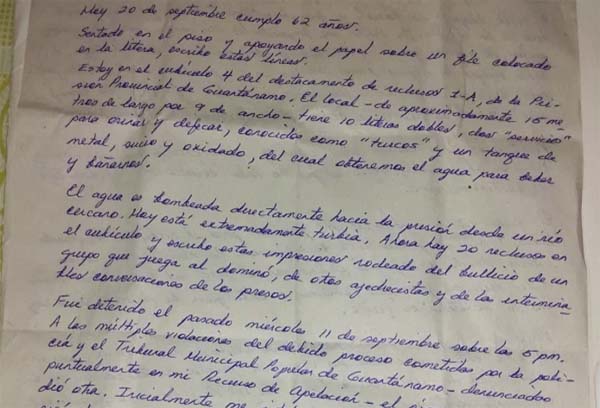 Hoy 20 de septiembre cumplo 62 años.
Sentado en el piso y apoyando el papel sobre un file colocado
en la litera, escribo estas líneas.
Estoy en el cubículo 4 del destacamento de reclusos 1-A, de la Pri-
sión Provincial de Guantánamo. El local - de aproximadamente 15 me-
tros de largo por 9 de ancho - tiene 10 literas dobles, dos "servicios"
para orinar y defecar, conocidos como "turcos" y un tanque de
metal, sucio y oxidado, del cual obtenemos el agua para beber
y bañarnos.
El agua es bombeada directamente hacia la prisión desde un río
cercano. Hoy está extremadamente turbia. Ahora hay 20 reclusos en
el cubículo y escribo estas impresiones rodeado del bullicio de un
grupo que juega al dominó, de otros ajedrecistas y de las intermina-
bles conversaciones de los presos.
Fui detenido el pasado miércoles 11 de septiembre sobre las 5 pm.
A las múltiples violaciones del debido proceso cometidas por la poli-
cía y el Tribunal Municipal Popular de Guantánamo - denunciadas
puntualmente en mi Recurso de Apelación - el
dió otra. Inicialmente me